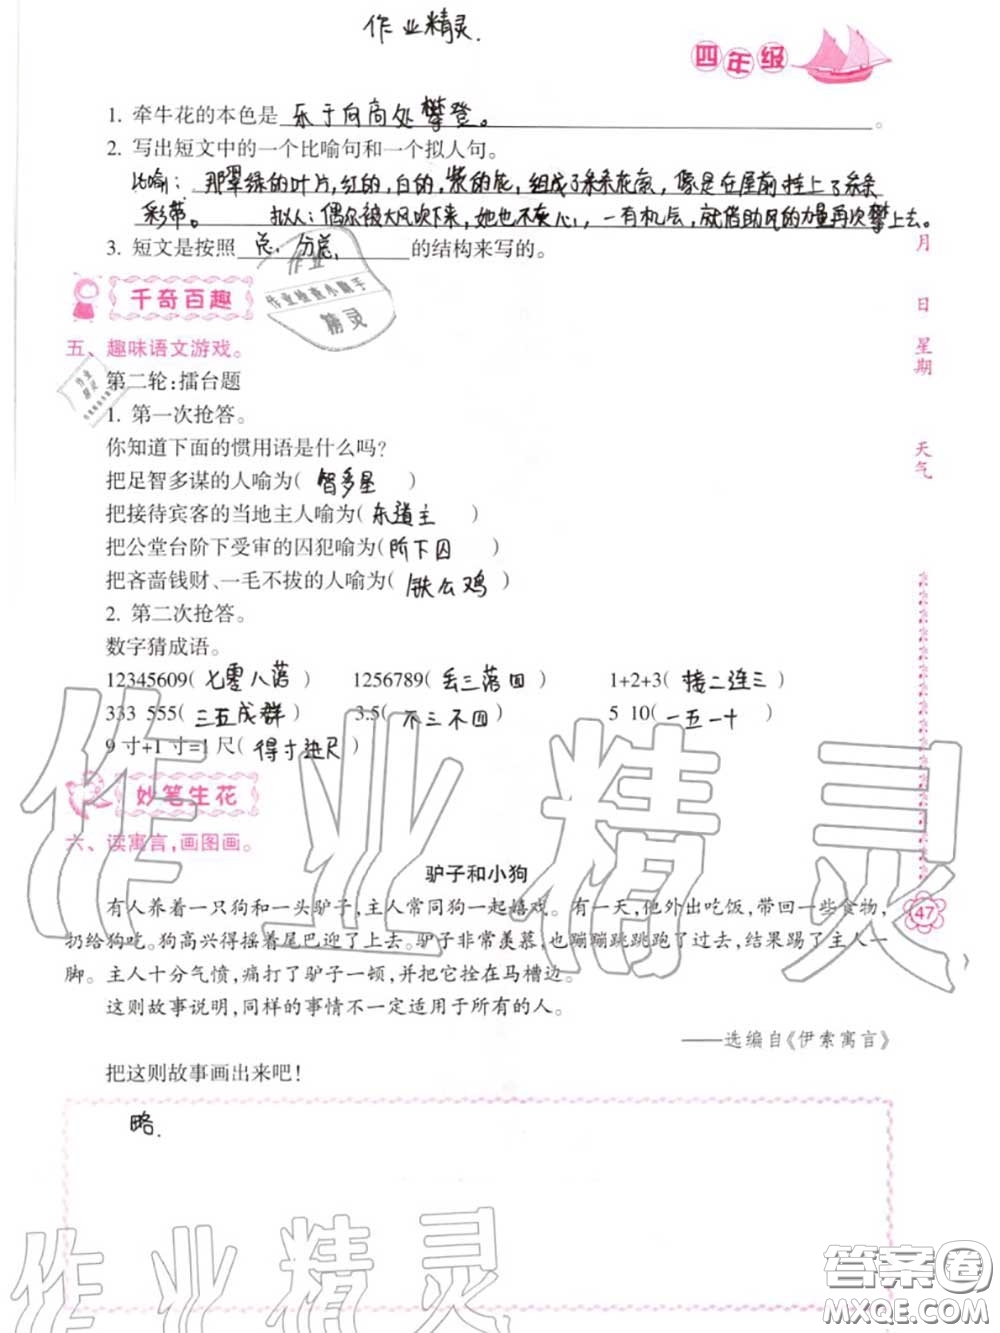 作业精灵.
四年级
1. 牵牛花的本色是 乐于向高处攀登。 。
2. 写出短文中的一个比喻句和一个拟人句。
比喻: 那翠绿的叶片,红的,白的,紫的花,组成了条条花氛,像是在屋前挂上了条条
彩带。 拟人:偶尔被大风吹下来,她也不灰心,,一有机会,就借助风的力量再次攀上去。
3. 短文是按照 总.分总. 的结构来写的。
月
日
星期
天气
千奇百趣
作业
作业检查小助手
精灵
五、趣味语文游戏。
第二轮:擂台题
1. 第一次抢答。
你知道下面的惯用语是什么吗?
把足智多谋的人喻为( 智多星 )
把接待宾客的当地主人喻为( 东道主 )
把公堂台阶下受审的囚犯喻为( 阶下囚 )
把吝啬钱财、一毛不拔的人喻为( 铁公鸡 )
2. 第二次抢答。
数字猜成语。
12345609( 七零八落 ) 1256789( 丢三落四 ) 1+2+3( 接二连三 )
333 555( 三五成群 ) 3.5( 不三不四 ) 5 10( 一五一十 )
9 寸+1 寸=1 尺( 得寸进尺 )
妙笔生花
六、读寓言,画图画。
驴子和小狗
有人养着一只狗和一头驴子,主人常同狗一起嬉戏。有一天,他外出吃饭,带回一些食物,
扔给狗吃。狗高兴得摇着尾巴迎了上去。驴子非常羡慕,也蹦蹦跳跳跑了过去,结果踢了主人一
脚。主人十分气愤,痛打了驴子一顿,并把它拴在马槽边。
这则故事说明,同样的事情不一定适用于所有的人。
——选编自《伊索寓言》
47
把这则故事画出来吧!
略.
作业精灵
作业精灵
答案圈
MXQE.COM